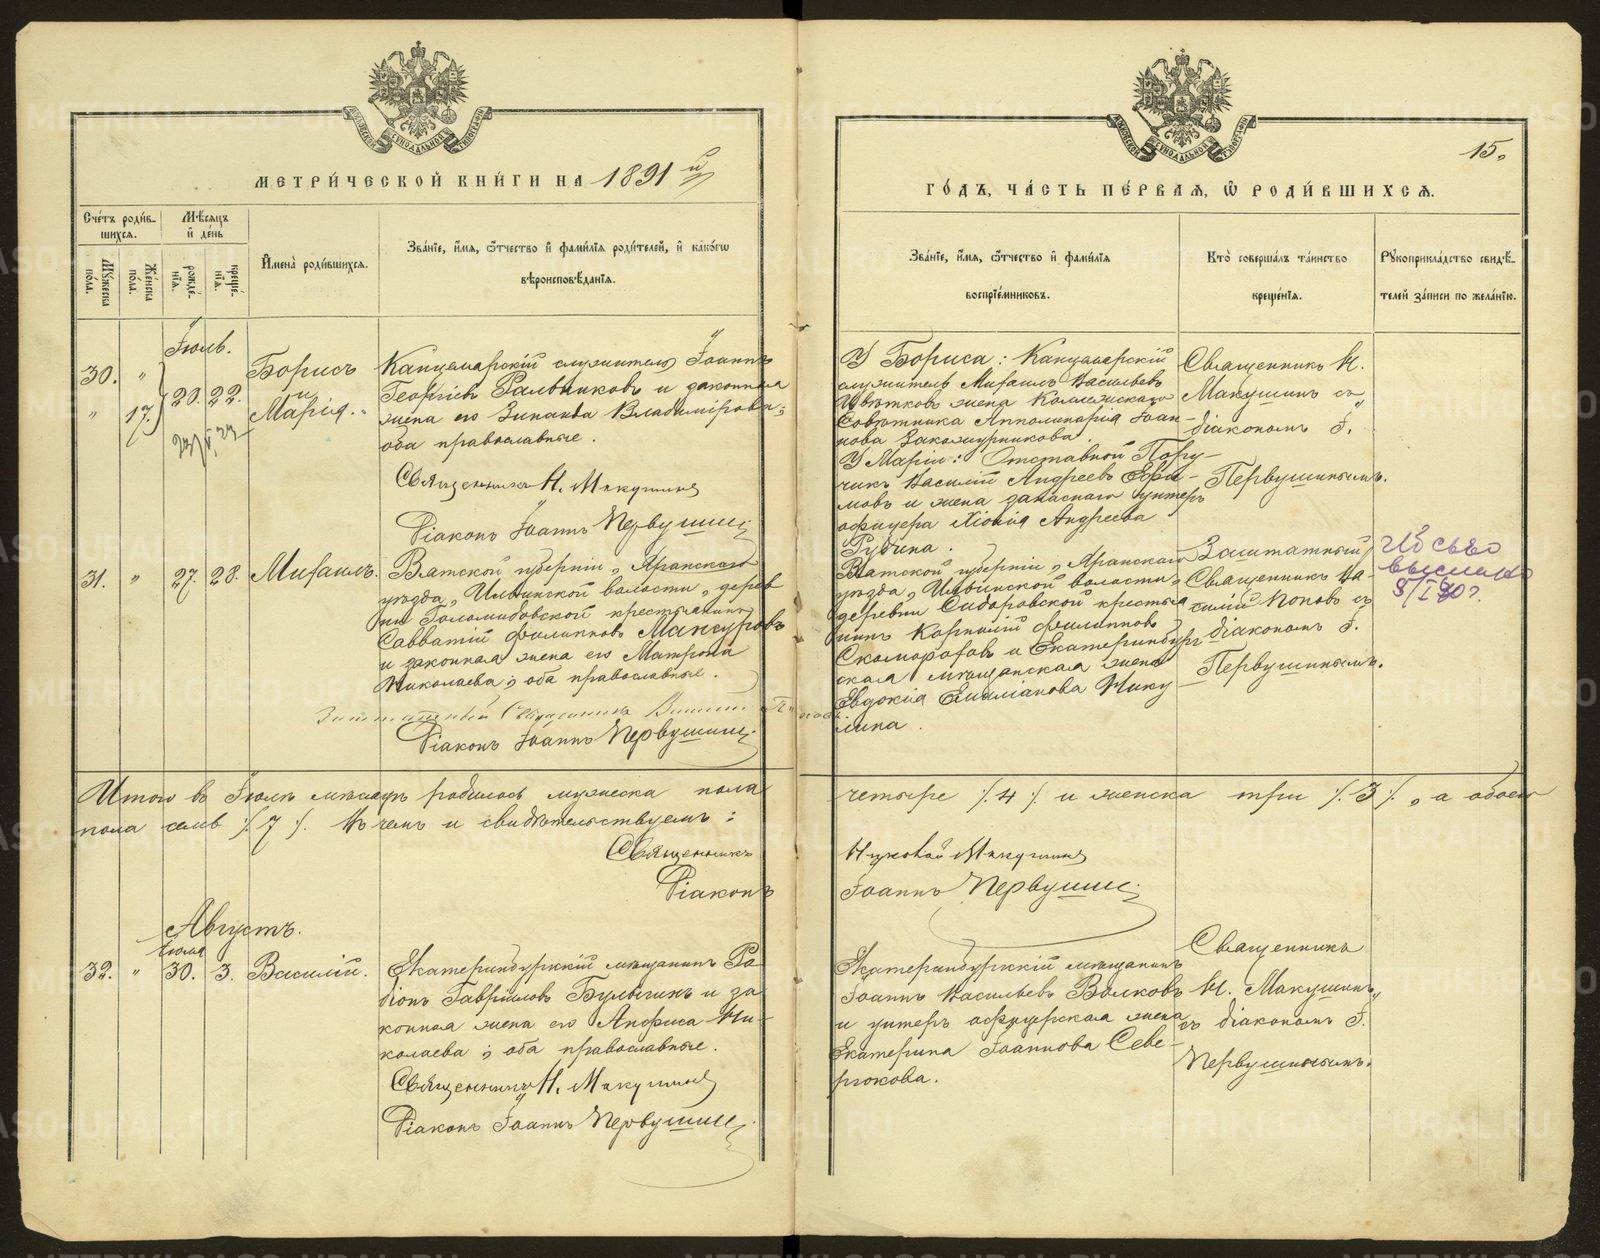 МЕТРИЧЕСКОЙ КНИГИ НА 1891 й
Счетъ родив-
шихся.
Мѣсяцъ
и день
Мужеска
пола.
Женска
пола.
рожде-
нія.
креще-
нія.
Имена родившихся.
Званіе, имя, отчество и фамилія родителей, и какого
вѣроисповѣданія.
Іюль.
30. " 20. 22. Борисъ
" 17. и
Марія.
Канцелярскій служитель Іоаннъ
Георгіевъ и законная
жена его Зинаида Владимірова;
оба православные.
Священникъ Н. Макушинъ
Діаконъ Іоаннъ Первушинъ
31. " 27. 28. Михаилъ.
Вятской губерніи, Яранскаго
уѣзда, Ильинской волости, дерев
ни крестьянинъ
Савватій Филипповъ Мансуровъ
и законная жена его Матрона
Николаева; оба православные.
Заштатный Священникъ Василій Поповъ
Діаконъ Іоаннъ Первушинъ
Итого въ Іюлѣ мѣсяцѣ родилось мужеска пола
пола семь /.7/. Въ чемъ и свидѣтельствуемъ:
Священникъ
Діаконъ
Августъ.
Іюля
32. " 30. 3. Василій.
Екатеринбургскій мѣщанинъ Ро
діонъ Гавріиловъ Булыгинъ и за
конная жена его Анфиса Ни-
колаева; оба православные.
Священникъ Н. Макушинъ
Діаконъ Іоаннъ Первушинъ
15.
ГОДЪ, ЧАСТЬ ПЕРВАЯ, Ѡ РОДИВШИХСЯ.
Званіе, имя, отчество и фамилія
воспріемниковъ.
Кто совершалъ таинство
крещенія.
Рукоприкладство свидѣ-
телей записи по желанію.
У Бориса: Канцелярскій
служитель Михаилъ Васильевъ
Цвѣтковъ жена Коллежскаго
Совѣтника Апполинарія Іоан-
нова Закожурникова.
У Маріи: Отставной Пору-
чикъ Василій Андреевъ Ефи-
мовъ и жена запаснаго унтеръ
офицера Хіонія Андреева
Рубина.
Священникъ Н.
Макушинъ съ
діакономъ І.
Первушинымъ.
Вятской губерніи, Яранскаго
уѣзда, Ильинской волости,
деревни Сидоровской крестья
нинъ Корнилій Филипповъ
Скоморохов и Екатеринбург
ская мѣщанская жена
Евдокія Емиліанова Нику
лина.
Заштатный
Священникъ Ва-
силій Поповъ съ
діакономъ І.
Первушинымъ.
выслано
четыре /.4/. и женска три /.3/., а обоего
Николай Макушинъ
Іоаннъ Первушинъ
Екатеринбургскій мѣщанинъ
Іоаннъ Васильевъ Волковъ
и унтеръ офицерская жена
Екатерина Іоаннова Севе-
рюкова.
Священникъ
Н. Макушинъ,
съ діакономъ І.
Первушинымъ.
METRIKI.GASO-URAL.RU